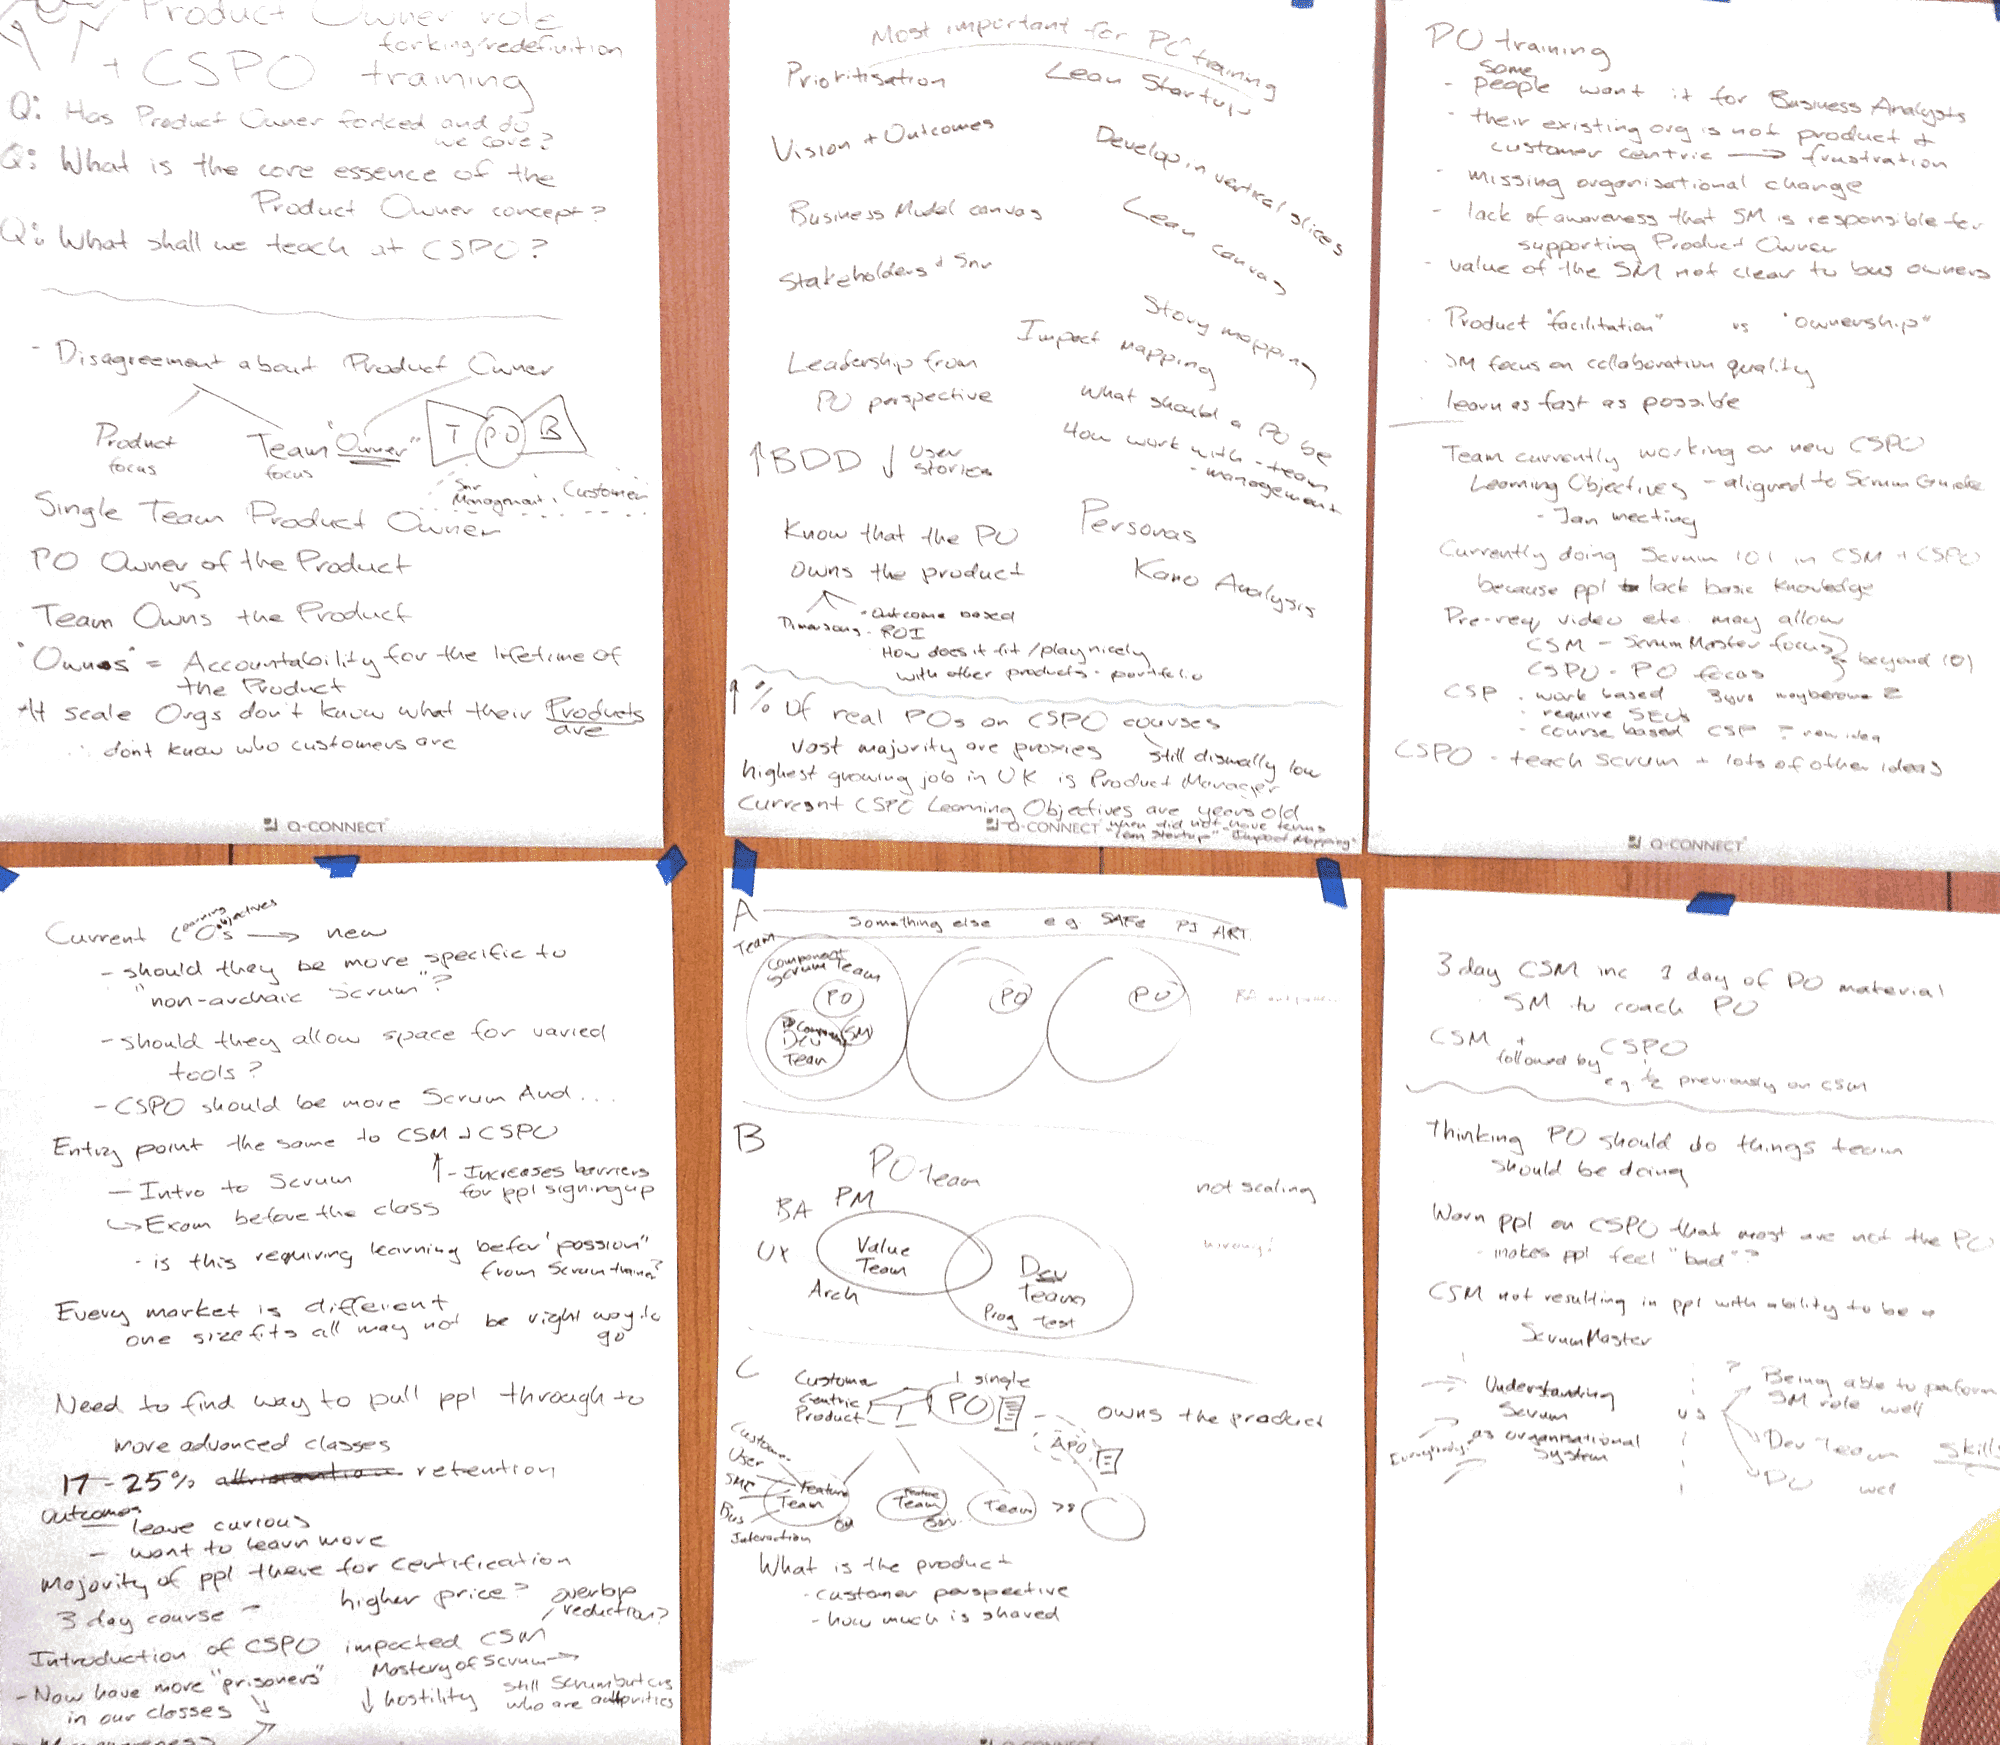 Product Owner role
forking/redefinition
+ CSPO training
Q: Has Product Owner forked and do
we care?
Q: What is the core essence of the
Product Owner concept?
Q: What shall we teach at CSPO?
- Disagreement about Product Owner
Product
focus
Team "Owner"
focus
T PO B
Snr
Management
Customer
Single Team Product Owner
PO Owner of the Product
vs
Team Owns the Product
"Owns" = Accountability for the lifetime of
the Product
At scale Orgs don't know what their Products
are
∴ don't know who customers are
Q-CONNECT
Most important for PO training
Prioritisation
Lean Startup
Vision + Outcomes
Develop in vertical slices
Business Model canvas
Lean canvas
Stakeholders + Snr
Story mapping
Impact mapping
Leadership from
PO perspective
What should a PO be
How work with - team
- management
↑ BDD ↓ User
stories
Know that the PO
owns the product
Personas
Kano Analysis
- Outcome based
Dimensions - ROI
How does it fit/play nicely
with other products - portfolio
↑ % of real POs on CSPO courses
still dismally low
vast majority are proxies
highest growing job in UK is Product Manager
Current CSPO Learning Objectives are years old
Q-CONNECT
when did not have terms
"Lean Startup" "Impact Mapping"
PO training
some
- people want it for Business Analysts
- their existing org is not product +
customer centric → frustration
- missing organisational change
- lack of awareness that SM is responsible for
supporting Product Owner
- value of the SM not clear to bus owners
· Product "facilitation" vs "ownership"
· SM focus on collaboration quality
· learn as fast as possible
Team currently working on new CSPO
Learning Objectives - aligned to Scrum Guide
- Jan meeting
Currently doing Scrum 101 in CSM + CSPO
because ppl lack basic knowledge
Pre-req video etc. may allow
CSM - ScrumMaster focus
CSPO - PO focus
} beyond 101
CSP · work based 3yrs maybe
· require SEUs
- course based CSP = new idea
CSPO - teach scrum + lots of other ideas
Q-CONNECT
Current LO's → new
Learning Objectives
- should they be more specific to
"non-archaic Scrum"?
- should they allow space for varied
tools?
- CSPO should be more Scrum And...
Entry point the same to CSM + CSPO
- Intro to Scrum
↑ - Increases barriers
for ppl signing up
↳ Exam before the class
- is this requiring learning before "passion"
from Scrum trainer?
Every market is different
one size fits all may not be right way to
go
Need to find way to pull ppl through to
more advanced classes
17-25% retention
Outcomes
- leave curious
- want to learn more
Majority of ppl there for certification
3 day course - higher price? overlap
reduction?
Introduction of CSPO impacted CSM
- Now have more "prisoners"
in our classes
Mastery of Scrum →
↓ hostility
still Scrumbuters
who are authorities
A
Something else e.g. SAFe PI ART.
Team
Component
Scrum Team
PO
SM
Component
Dev
Team
PO
PO
B
PO team
not scaling
BA PM
UX
Value
Team
Arch
Dev
Team
Prog Test
wrong!
C
Customer
Centric
Product
1 single
PO
owns the product
APO
Customer
User
SME
Bus
Interaction
Feature
Team
Feature
Team
Team
>8
What is the product
- customer perspective
- how much is shared
Q-CONNECT
3 day CSM inc 1 day of PO material
· SM to coach PO
CSM + CSPO
followed by
eg ½ previously on CSM
Thinking PO should do things team
should be doing
Warn ppl on CSPO that most are not the PO
- makes ppl feel "bad"?
CSM not resulting in ppl with ability to be a
ScrumMaster
Understanding
Scrum
as organisational
System
Everybody?
vs
?
Being able to perform
SM role well
Dev Team skills
PO well